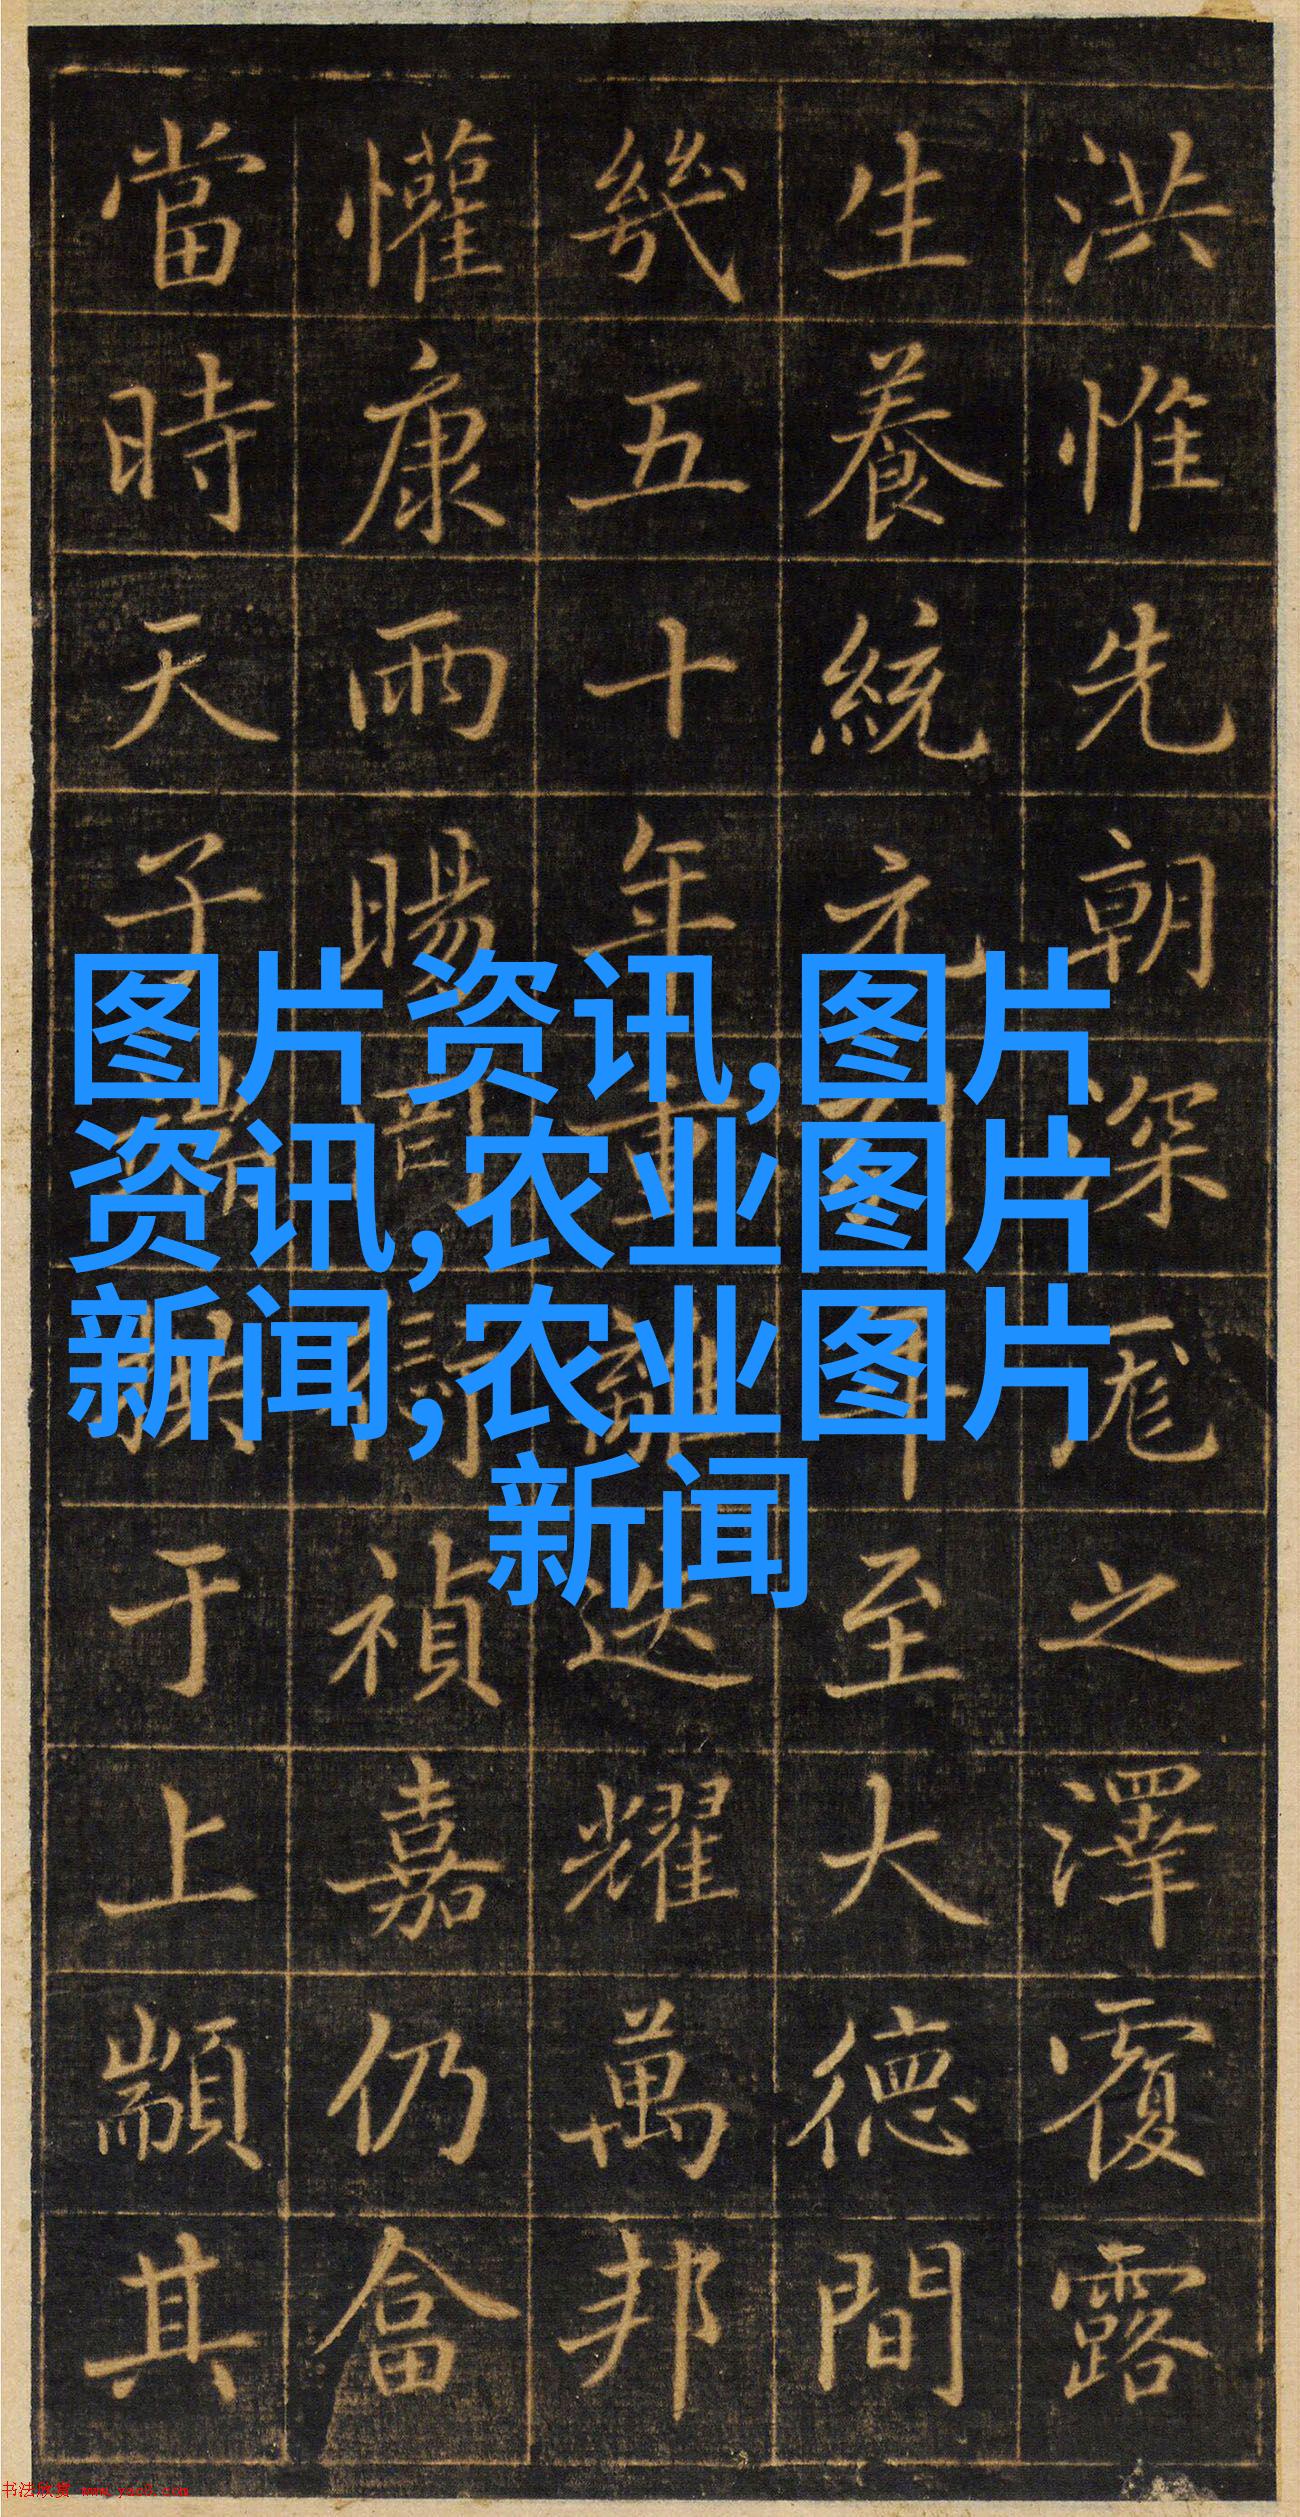 洪惟先朝深厖之澤覆露
生養統元年至大德間
幾五十年重離迭耀萬邦
懽康雨暘禎嘉仍畣
當時天子端拱于上顒其
图片资讯,图片
资讯,农业图片
新闻,农业图片
新闻
书法欣赏 www.yac8.com